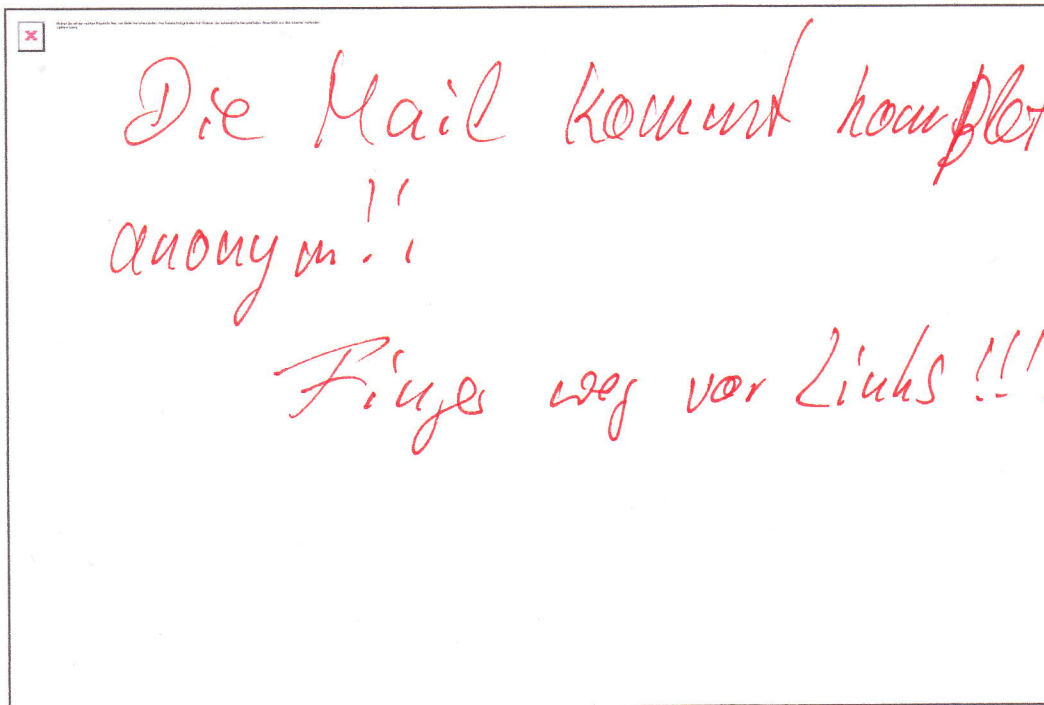 Die Mail kommt komplet
anonym!!
Finger weg vor Links!!!